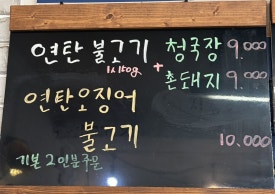 연탄 불고기 청국장 9.000
+ 촌돼지 9.000
연탄오징어
불고기 10.000
기본 2인분 주문